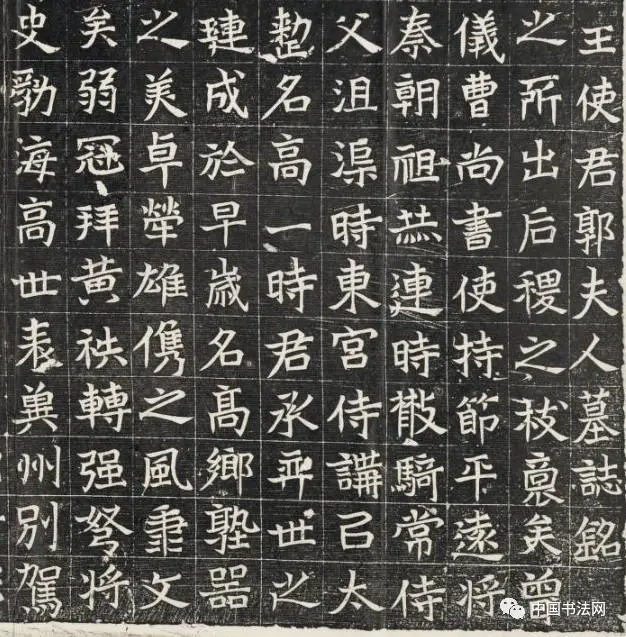 王使君郭夫人墓誌銘
之所出后稷之枝裔矣曾
儀曹尚書使持節平遠將
秦朝祖恭連時散騎常侍
父沮渠時東宮侍講召太
整名高一時君承弈世之
璉成於早歲名高鄉塾器
之美卓犖雄儁之風秉文
矣弱冠拜黃袟轉强弩將
史勃海高世表冀州別駕
中国书法网